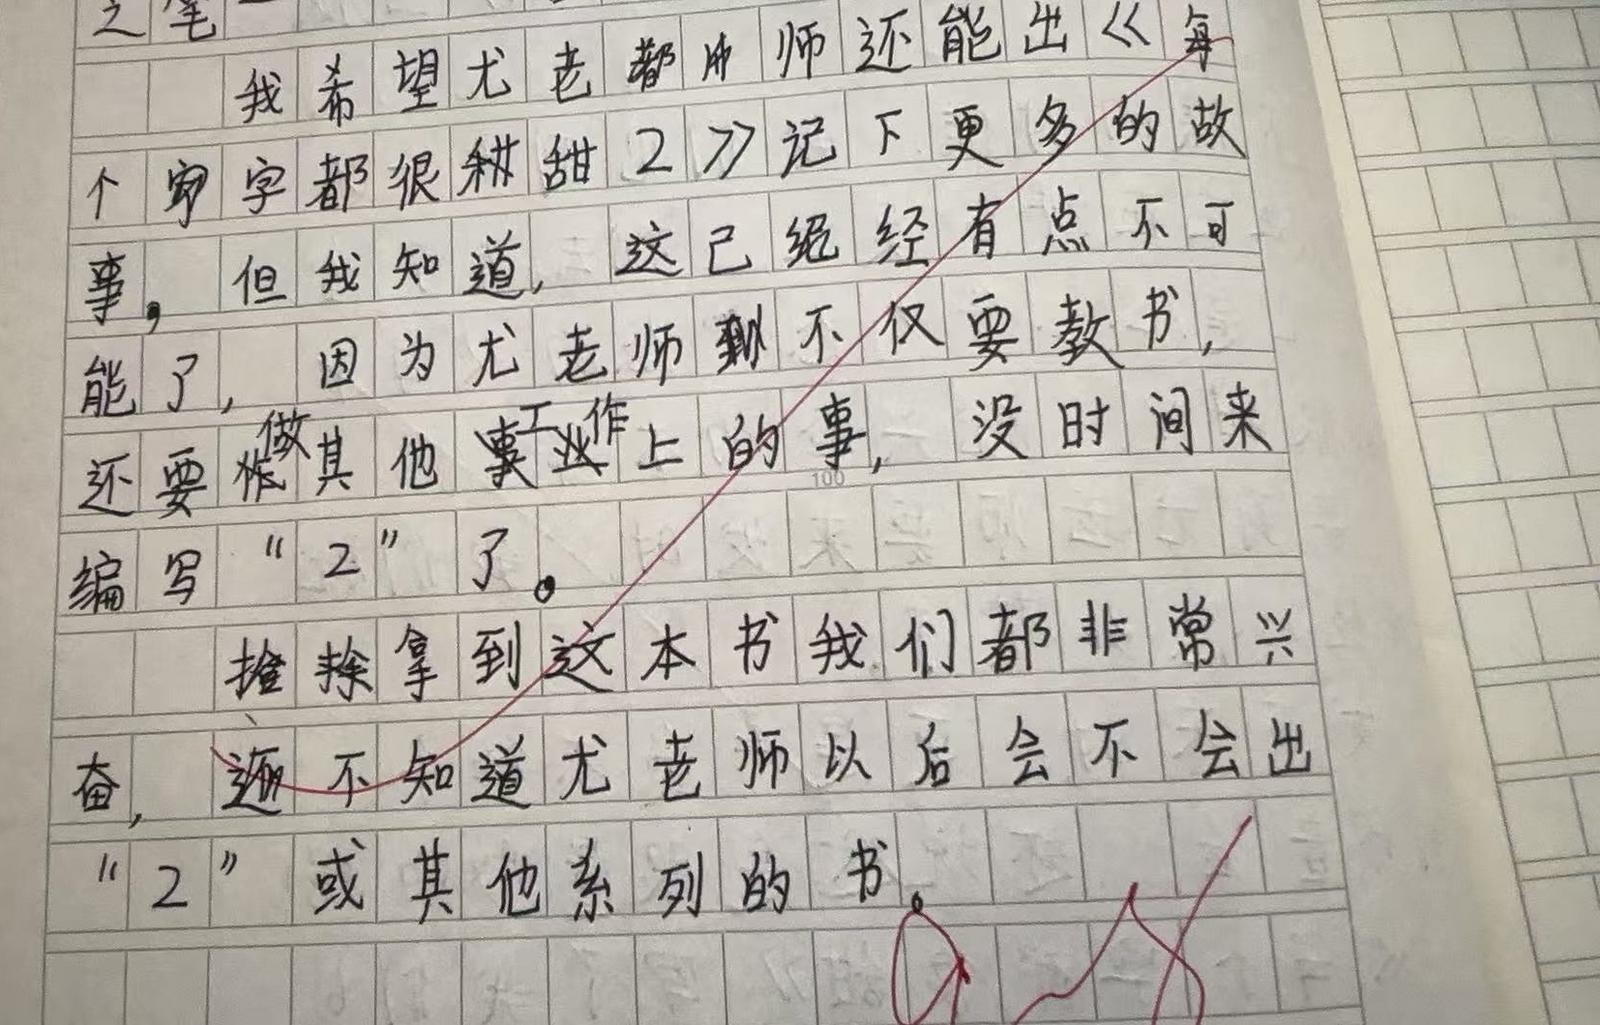 之笔一
我希望尤老师还能出《每
个字都很甜2》记下更多的故
事，但我知道，这已经有点不可
能了，因为尤老师不仅要教书，
还要做其他工作上的事，没时间来
100
编写“2”了。
拿到这本书我们都非常兴
奋，不知道尤老师以后会不会出
“2”或其他系列的书。